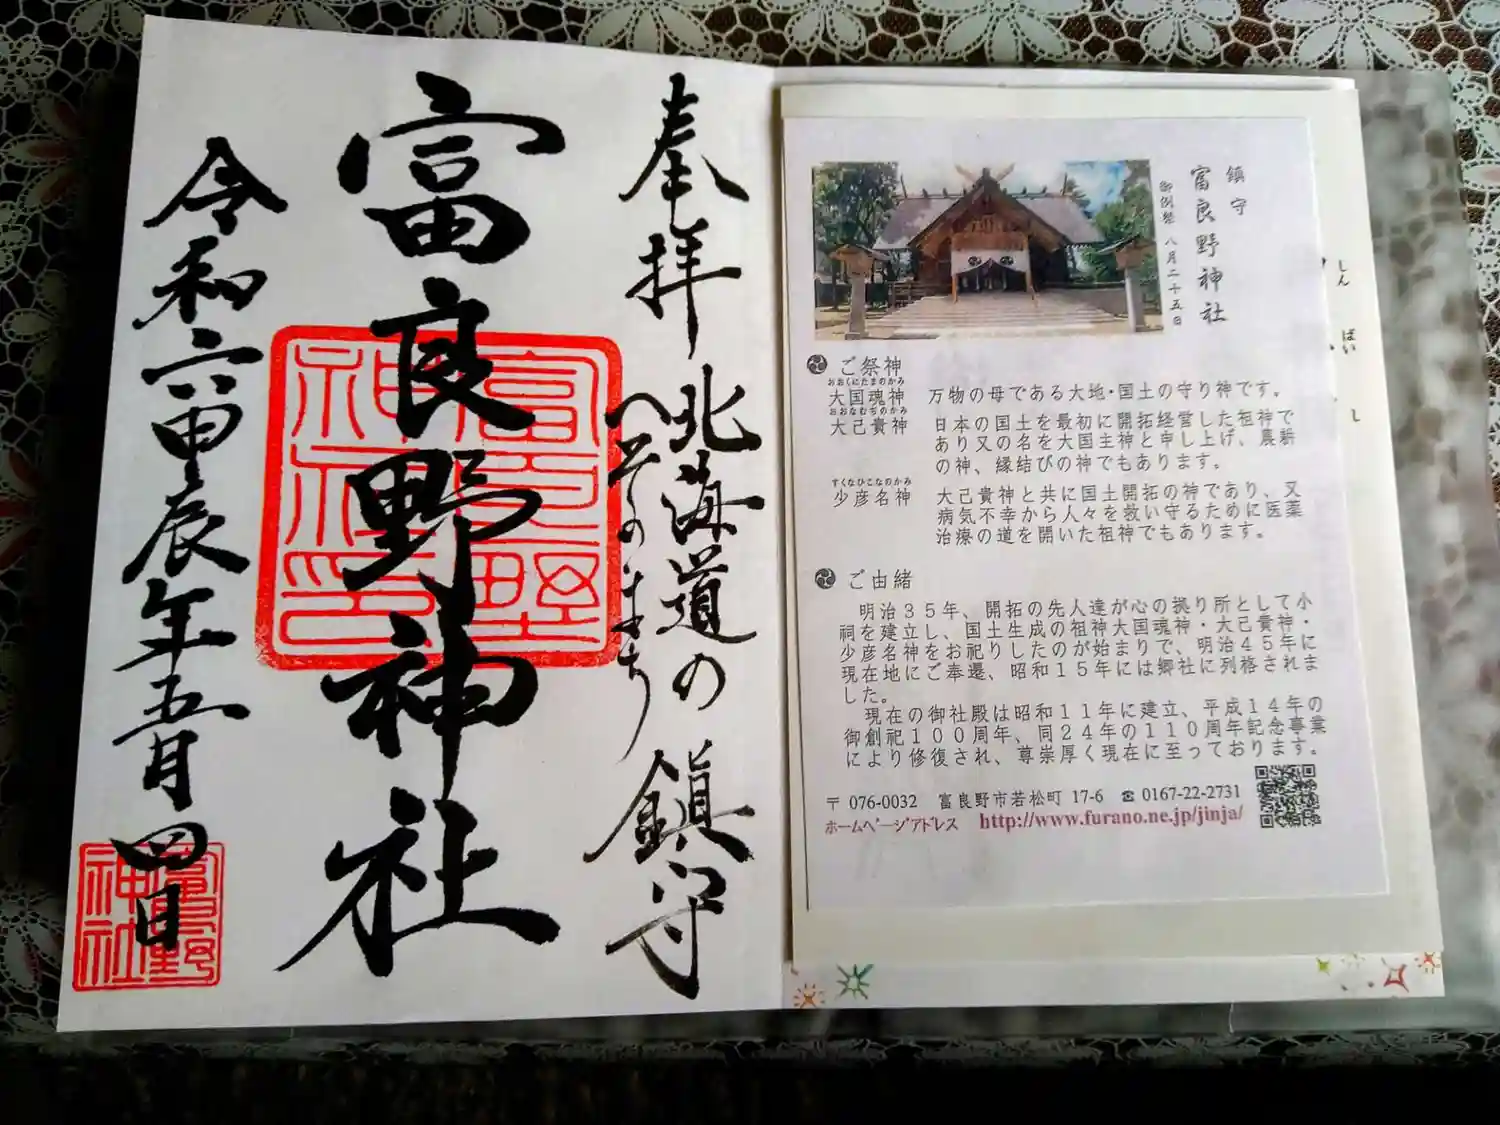 奉拝
北海道の
へそのまち
鎮守
富良野神社
令和六甲辰年五月四日
富良野神社印
富良野神社
鎮守
富良野神社
御例祭 八月二十五日
ご祭神
おおくにたまのかみ
大国魂神 万物の母である大地・国土の守り神です。
おおなむぢのかみ
大己貴神 日本の国土を最初に開拓経営した祖神で
あり又の名を大国主神と申し上げ、農耕
の神、縁結びの神でもあります。
すくなひこなのかみ
少彦名神 大己貴神と共に国土開拓の神であり、又
病気不幸から人々を救い守るために医薬
治療の道を開いた祖神でもあります。
ご由緒
明治35年、開拓の先人達が心の拠り所として小
祠を建立し、国土生成の祖神大国魂神・大己貴神・
少彦名神をお祀りしたのが始まりで、明治45年に
現在地にご奉還、昭和15年には郷社に列格されま
した。
現在の御社殿は昭和11年に建立、平成14年の
御創祀100周年、同24年の110周年記念事業
により修復され、尊崇厚く現在に至っております。
〒 076-0032 富良野市若松町 17-6 ☎ 0167-22-2731
ホームページアドレス http://www.furano.ne.jp/jinja/
しん
ぱい
し